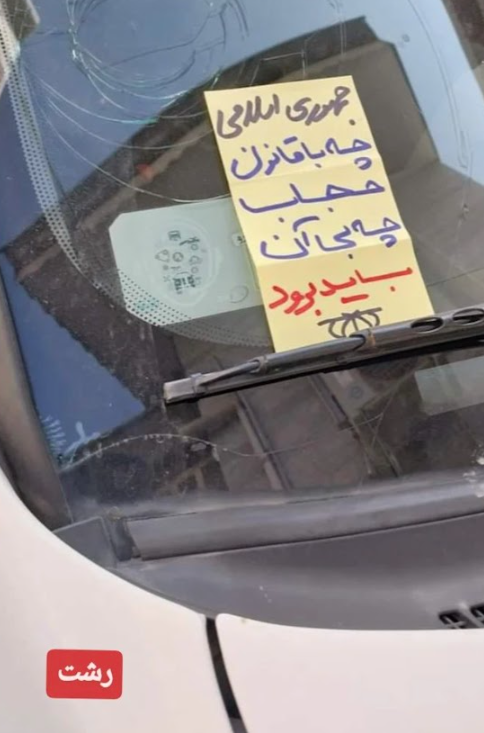 جمهوری اسلامی
چه با قانون
حجاب
چه بجا آن
باید برود
رشت